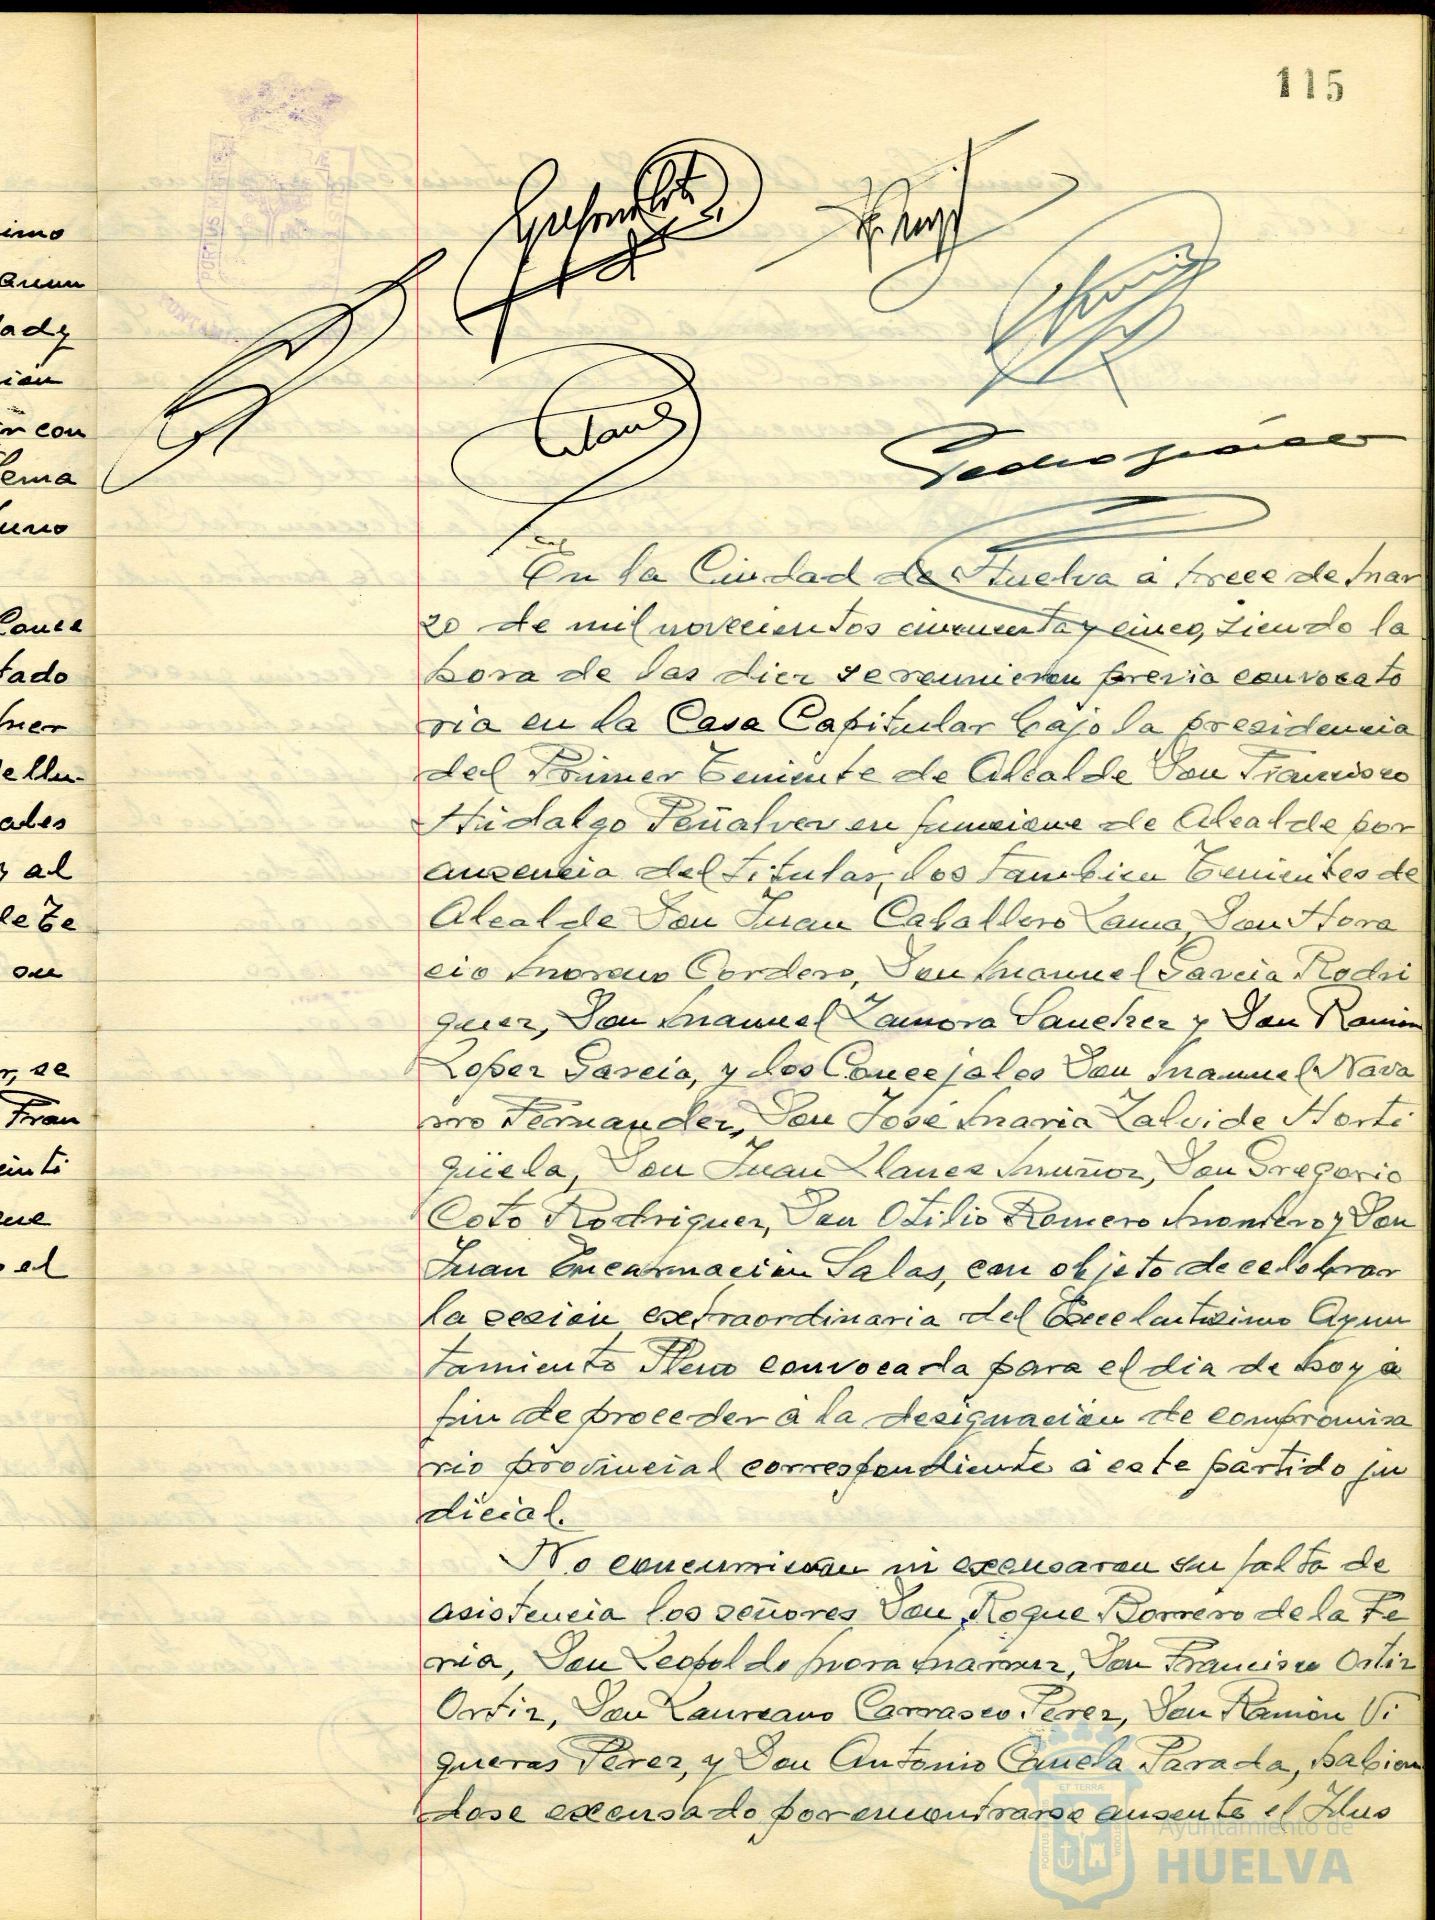 115
En la Ciudad de Huelva á trece de Mar
zo de mil novecientos cincuenta y cinco, siendo la
hora de las diez se reunieron previa convocato
ria en la Casa Capitular bajo la presidencia
del Primer Teniente de Alcalde Don Francisco
Hidalgo Peñalver en funcione de Alcalde por
ausencia del titular, los tambien Tenientes de
Alcalde Don Juan Caballero Lama, Don Hora
cio Moreno Cordero, Don Manuel Garcia Rodri
guez, Don Manuel Zamora Sanchez y Don Ramon
Lopez Garcia, y los Concejales Don Manuel Nava
rro Fernandez, Don José Maria Zalvide Horti
güela, Don Juan Llanes Muñoz, Don Gregorio
Coto Rodriguez, Don Otilio Romero Montero y Don
Juan Encarnación Salas, con objeto de celebrar
la sesión extraordinaria del Excelentisimo Ayun
tamiento Pleno convocada para el dia de hoy a
fin de proceder á la designación de compromisa
rio provincial correspondiente á este partido ju
dicial.
No concurrieron ni excusaron su falta de
asistencia los señores Don Roque Borrero de la Fe
ria, Don Leopoldo Mora Marmz, Don Francisco Ortiz
Ortiz, Don Laureano Carrasco Perez, Don Ramón Vi
gueras Perez, y Don Antonio Canela Parada, habien
dose excusado por encontrarse ausente el Ilus
imo
lady
r con
lema
tado
ales
y al
de Te
su
r, se
Fran
einti
el
PORTUS MARIS
ET TERRÆ
Ayuntamiento de
HUELVA